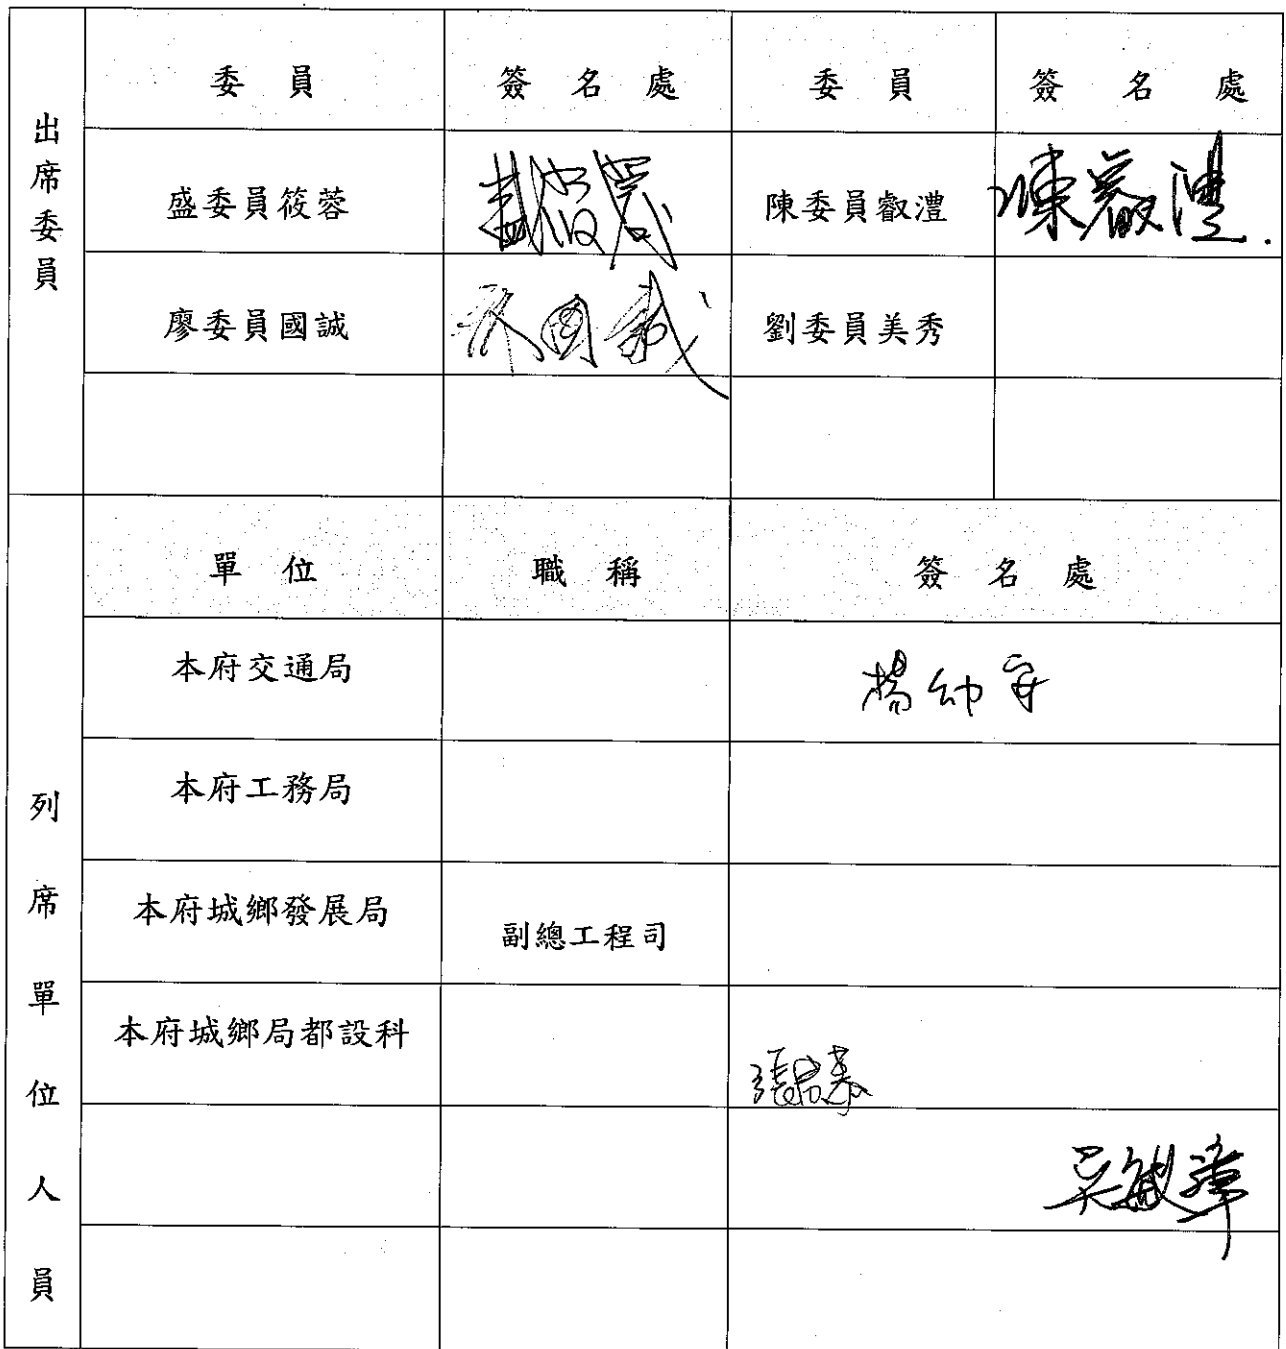 出席委員
委員 簽名處 委員 簽名處
盛委員筱蓉 盛筱蓉 陳委員叡澧 陳叡澧.
廖委員國誠 廖國誠 劉委員美秀
列席單位人員
單位 職稱 簽名處
本府交通局 楊幼安
本府工務局
本府城鄉發展局 副總工程司
本府城鄉局都設科